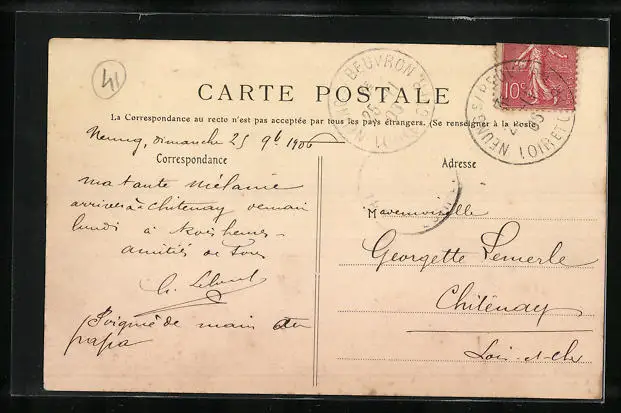 41
CARTE POSTALE
La Correspondance au recto n'est pas acceptée par tous les pays étrangers. (Se renseigner à la Poste)
Neung, dimanche 25 9b 1906
Correspondance
Adresse
ma tante Mélanie
arrivera à Chitenay demain
lundi à trois heures -
amitiés de tous
poignée de main au
papa
Mademoiselle
Georgette Lemerle
Chitenay
Loir-et-Cher
10c
NEUNG-S-BEUVRON
LOIR-ET-CHER